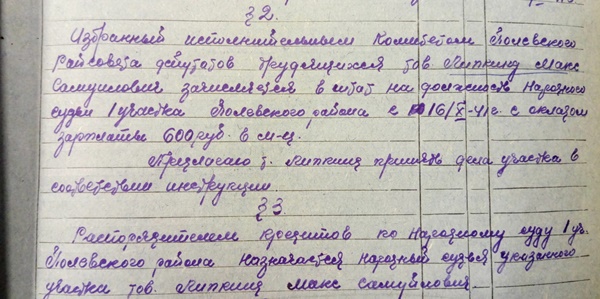 § 2.
Избранный исполнительным Комитетом Полевского
Райсовета депутатов трудящихся тов. Липкинд Макс
Самуилович зачисляется в штат на должность Народного
судьи 1 участка Полевского района с 16/X-41 г. с окладом
зарплаты 600 руб. в м-ц.
Предлагаю т. Липкинд принять дела участка в
соответствии инструкции.
§ 3.
Распорядителем кредитов по Народному суду 1 уч.
Полевского района назначается народный судья указанного
участка тов. Липкинд Макс Самуилович.